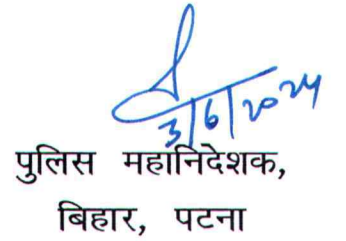 3/6/2024
पुलिस महानिदेशक,
बिहार, पटना